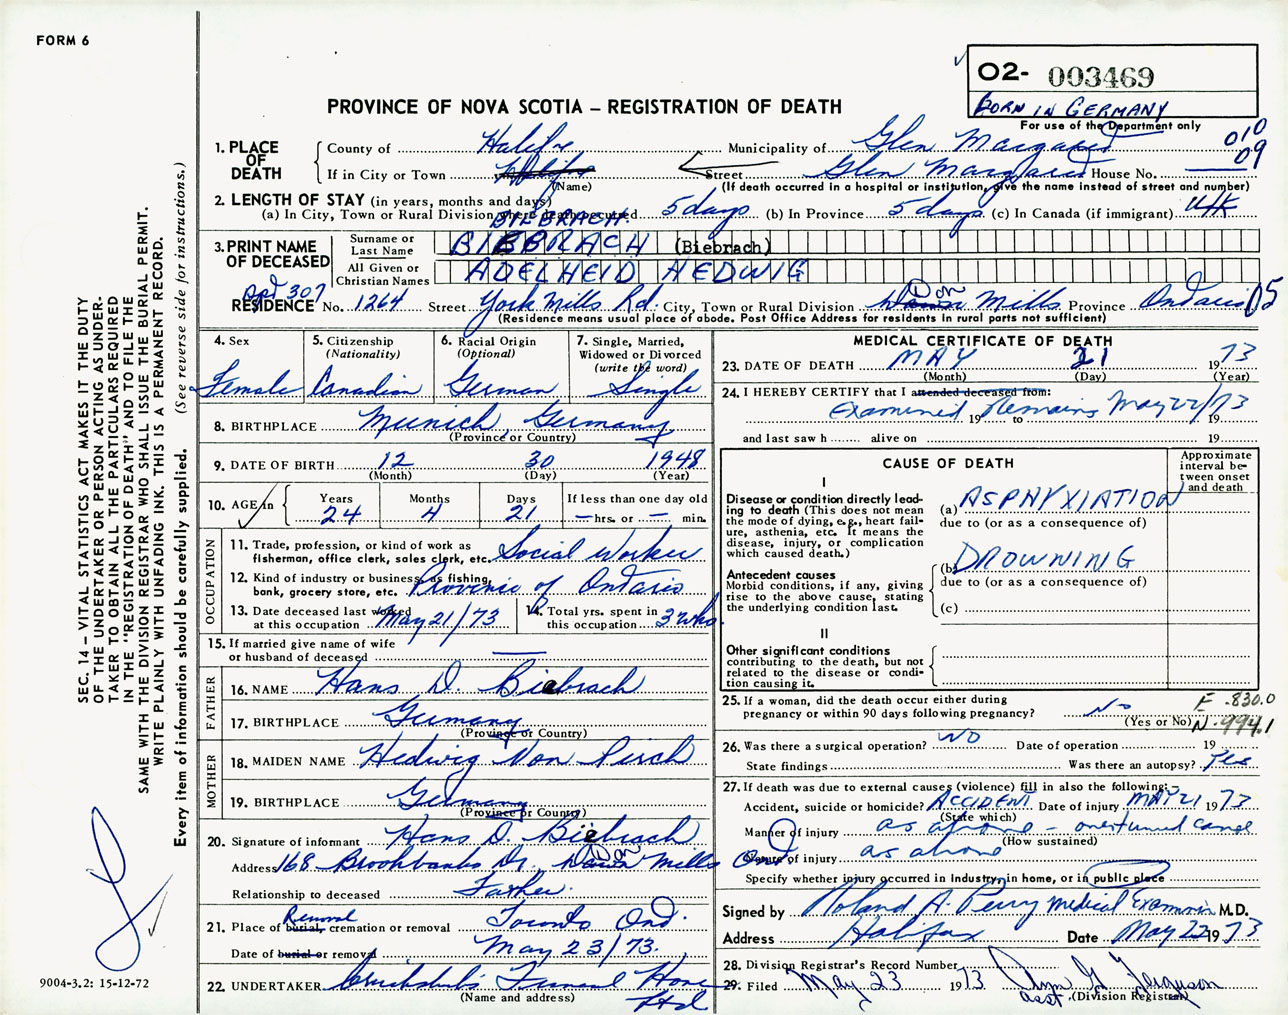 FORM 6
O2- 003469
BORN IN GERMANY
For use of the Department only
PROVINCE OF NOVA SCOTIA – REGISTRATION OF DEATH
010
09
1. PLACE OF DEATH
County of Halifax Municipality of Glen Margaret
If in City or Town Halifax (Name) Street Glen Margaret House No.
(If death occurred in a hospital or institution, give the name instead of street and number)
2. LENGTH OF STAY (in years, months and days)
(a) In City, Town or Rural Division where death occurred 5 days (b) In Province 5 days (c) In Canada (if immigrant) UK
BIEBRACH
3. PRINT NAME OF DECEASED
Surname or Last Name BIEBRACH (Biebrach)
All Given or Christian Names ADELHEID HEDWIG
Apt 307
RESIDENCE No. 1264 Street York Mills Rd. City, Town or Rural Division Don Mills Province Ontario 05
(Residence means usual place of abode. Post Office Address for residents in rural parts not sufficient)
4. Sex Female
5. Citizenship (Nationality) Canadian
6. Racial Origin (Optional) German
7. Single, Married, Widowed or Divorced (write the word) Single
8. BIRTHPLACE Munich, Germany
(Province or Country)
9. DATE OF BIRTH 12 30 1948
(Month) (Day) (Year)
10. AGE in Years 24 Months 4 Days 21 If less than one day old – hrs. or – min.
OCCUPATION
11. Trade, profession, or kind of work as fisherman, office clerk, sales clerk, etc. Social Worker
12. Kind of industry or business, as fishing, bank, grocery store, etc. Province of Ontario
13. Date deceased last worked at this occupation May 21/73
14. Total yrs. spent in this occupation 3 wks.
15. If married give name of wife or husband of deceased —
FATHER
16. NAME Hans D. Biebrach
17. BIRTHPLACE Germany
(Province or Country)
MOTHER
18. MAIDEN NAME Hedwig Von Perch
19. BIRTHPLACE Germany
(Province or Country)
20. Signature of informant Hans D. Biebrach
Address 168 Brookbanks Dr. Don Mills Ont
Relationship to deceased Father.
21. Place of burial, cremation or removal Removal Toronto Ont.
Date of burial or removal May 23/73.
22. UNDERTAKER Cruikshank's Funeral Home Ltd
(Name and address)
MEDICAL CERTIFICATE OF DEATH
23. DATE OF DEATH MAY 21 1973
(Month) (Day) (Year)
24. I HEREBY CERTIFY that I attended deceased from:
Examined 19 Remains to May 22/73 19
and last saw h alive on 19
CAUSE OF DEATH
Approximate interval between onset and death
I
Disease or condition directly leading to death (This does not mean the mode of dying, e.g., heart failure, asthenia, etc. It means the disease, injury, or complication which caused death.)
(a) ASPHYXIATION
due to (or as a consequence of)
Antecedent causes
Morbid conditions, if any, giving rise to the above cause, stating the underlying condition last.
(b) DROWNING
due to (or as a consequence of)
(c)
II
Other significant conditions
contributing to the death, but not related to the disease or condition causing it.
25. If a woman, did the death occur either during pregnancy or within 90 days following pregnancy? No
(Yes or No)
E .830.0
N .994.1
26. Was there a surgical operation? NO Date of operation 19
State findings Was there an autopsy? Yes
27. If death was due to external causes (violence) fill in also the following:
Accident, suicide or homicide? ACCIDENT Date of injury MAY 21 1973
(State which)
Manner of injury as above – overturned canoe
(How sustained)
Nature of injury as above
Specify whether injury occurred in industry, in home, or in public place
Signed by Roland A. Perry Medical Examiner M.D.
Address Halifax Date May 22 1973
28. Division Registrar's Record Number
29. Filed May 23 1973 Ferguson
asst. (Division Registrar)
SEC. 14 – VITAL STATISTICS ACT MAKES IT THE DUTY
OF THE UNDERTAKER OR PERSON ACTING AS UNDER-
TAKER TO OBTAIN ALL THE PARTICULARS REQUIRED
IN THE "REGISTRATION OF DEATH" AND TO FILE THE
SAME WITH THE DIVISION REGISTRAR WHO SHALL ISSUE THE BURIAL PERMIT.
WRITE PLAINLY WITH UNFADING INK. THIS IS A PERMANENT RECORD.
Every item of information should be carefully supplied. (See reverse side for instructions.)
9004-3.2: 15-12-72